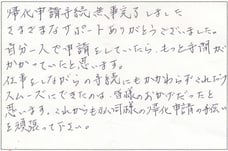 帰化申請手続無事完了しました
さまざまなサポートありがとうございました。
自分一人で申請をしていたら、もっと手間が
かかっていたと思います。
仕事をしながらの手続にもかかわらずこれだけ
スムーズにできたのは、皆様のおかげだったと
思います。これからも同様の帰化申請の手伝い
を頑張って下さい。